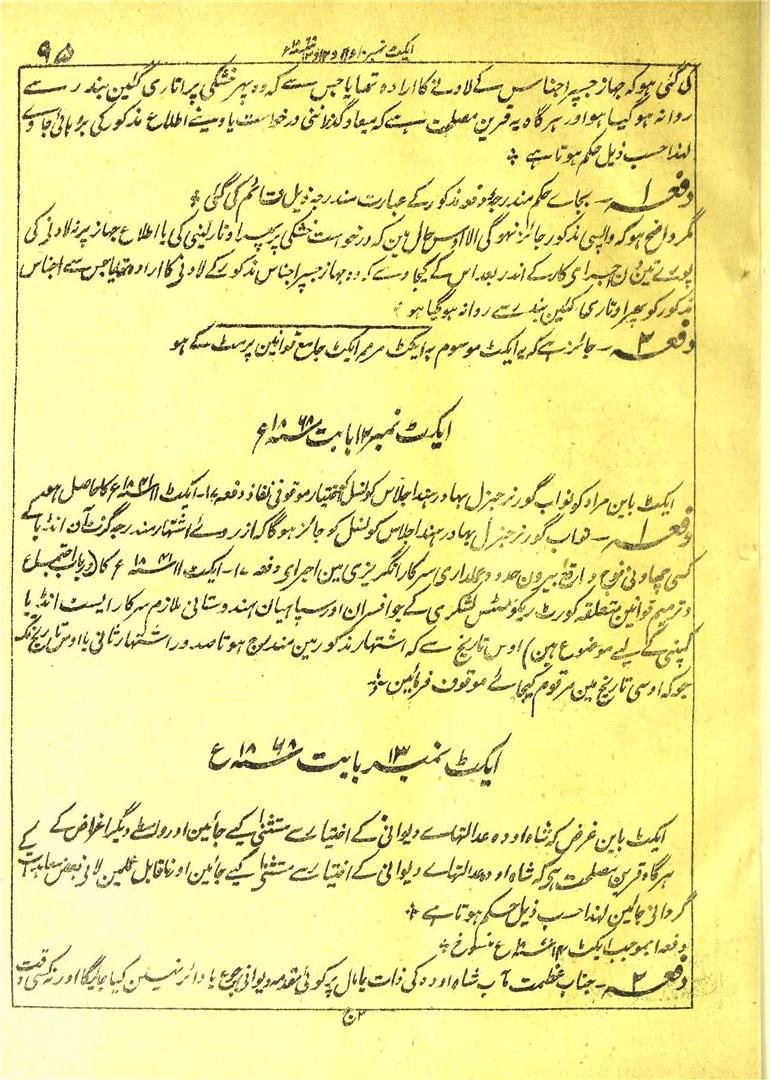 ۹۵
ایکٹ نمبر ۱۰ و ۱۱ و ۱۲ و ۱۳ سنہ ۱۸۶۸ع
کی گئی ہو کہ جہاز جسپر اجناس کے لادنے کا ارادہ تھا یا جس سے کہ وہ پھر خشکی پر اتاری گئین بندر سے
روانہ ہو گیا ہو اور ہر گاہ یہ قرین مصلحت ہے کہ میعاد گذراننی درخواست یا دینے اطلاع مذکور کی بڑہائی جاوے
لہذا حسب ذیل حکم ہوتا ہے ٭
دفعہ ۱ ۔ بجاے حکم مندرجہ دفعہ مذکور کے عبارت مندرجہ ذیل قائم کی گئی ٭
مگر واضح ہو کہ واپسی مذکور جائز نہوگی الا اوس حال مین کہ درخواست خشکی پر پھر اوتار لینی کی یا اطلاع جہاز پر نہ لادنی کی
پورے تین دن اجراے کار کے اندر بعد اس کے کیجاوے کہ وہ جہاز جسپر اجناس مذکور کے لادنی کا ارادہ تھا یا جس سے اجناس
مذکور کو پھر اوتاری گئین بندر سے روانہ ہو گیا ہو
دفعہ ۲ ۔ جائز ہے کہ یہ ایکٹ موسوم بہ ایکٹ مرمم ایکٹ جامع قوانین پرمٹ کے ہو
ایکٹ نمبر ۱۲ بابت سنہ ۱۸۶۸ع
ایکٹ باین مراد کو نواب گورنر جنرل بہادر ہند اجلاس کونسل کو اختیار موقوفی نفاذ دفعہ ۱۷۔ ایکٹ ۱۱ سنہ ۱۸۴۱ع کا حاصل ہو
دفعہ ۱ ۔ نواب گورنر جنرل بہادر ہند اجلاس کونسل کو جائز ہوگا کہ از روے اشتہار مندرجہ گزٹ آن انڈیا کے
کسی چھاونی فوج واقع بیرون حدود عملداری سرکار انگریزی مین اجراے دفعہ ۱۷۔ ایکٹ ۱۱ سنہ ۱۸۴۱ع کا (درباب اجتماع
و ترمیم قوانین متعلقہ کورٹ ریکوئسٹس لشکری کے جو افسران اور سپاہیان ہندوستانی ملازم سرکار ایسٹ انڈیا
کمپنی کے لیے موضوع ہین) اوس تاریخ سے کہ اشتہار مذکور مین مندرج ہو تا صدور اشتہار ثانی یا اوس تاریخ تک
جو کہ اوسی تاریخ مین مرقوم کیجائے موقوف فرمائین ٭
ایکٹ نمبر ۱۳ بابت سنہ ۱۸۶۸ع
ایکٹ باین غرض کہ شاہ اودہ عدالتہاے دیوانی کے اختیار سے مستثنی کیے جائین اور واسطے دیگر اغراض کے
ہر گاہ قرین مصلحت ہی کہ شاہ اودہ عدالتہاے دیوانی کے اختیار سے مستثنی کیے جائین اور ناقابل عمل مین لانی بعض معاہدات کے
گردانی جائین لہذا حسب ذیل حکم ہوتا ہے ٭
دفعہ ۱ بموجب ایکٹ ۱۴ سنہ ع منسوخ ٭
دفعہ ۲ ۔ جناب عظمت مآب شاہ اودہ کی ذات یا مال پر کوئی مقدمہ دیوانی رجوع یا دائر نہین کیا جائیگا اور نہ کسی وقت